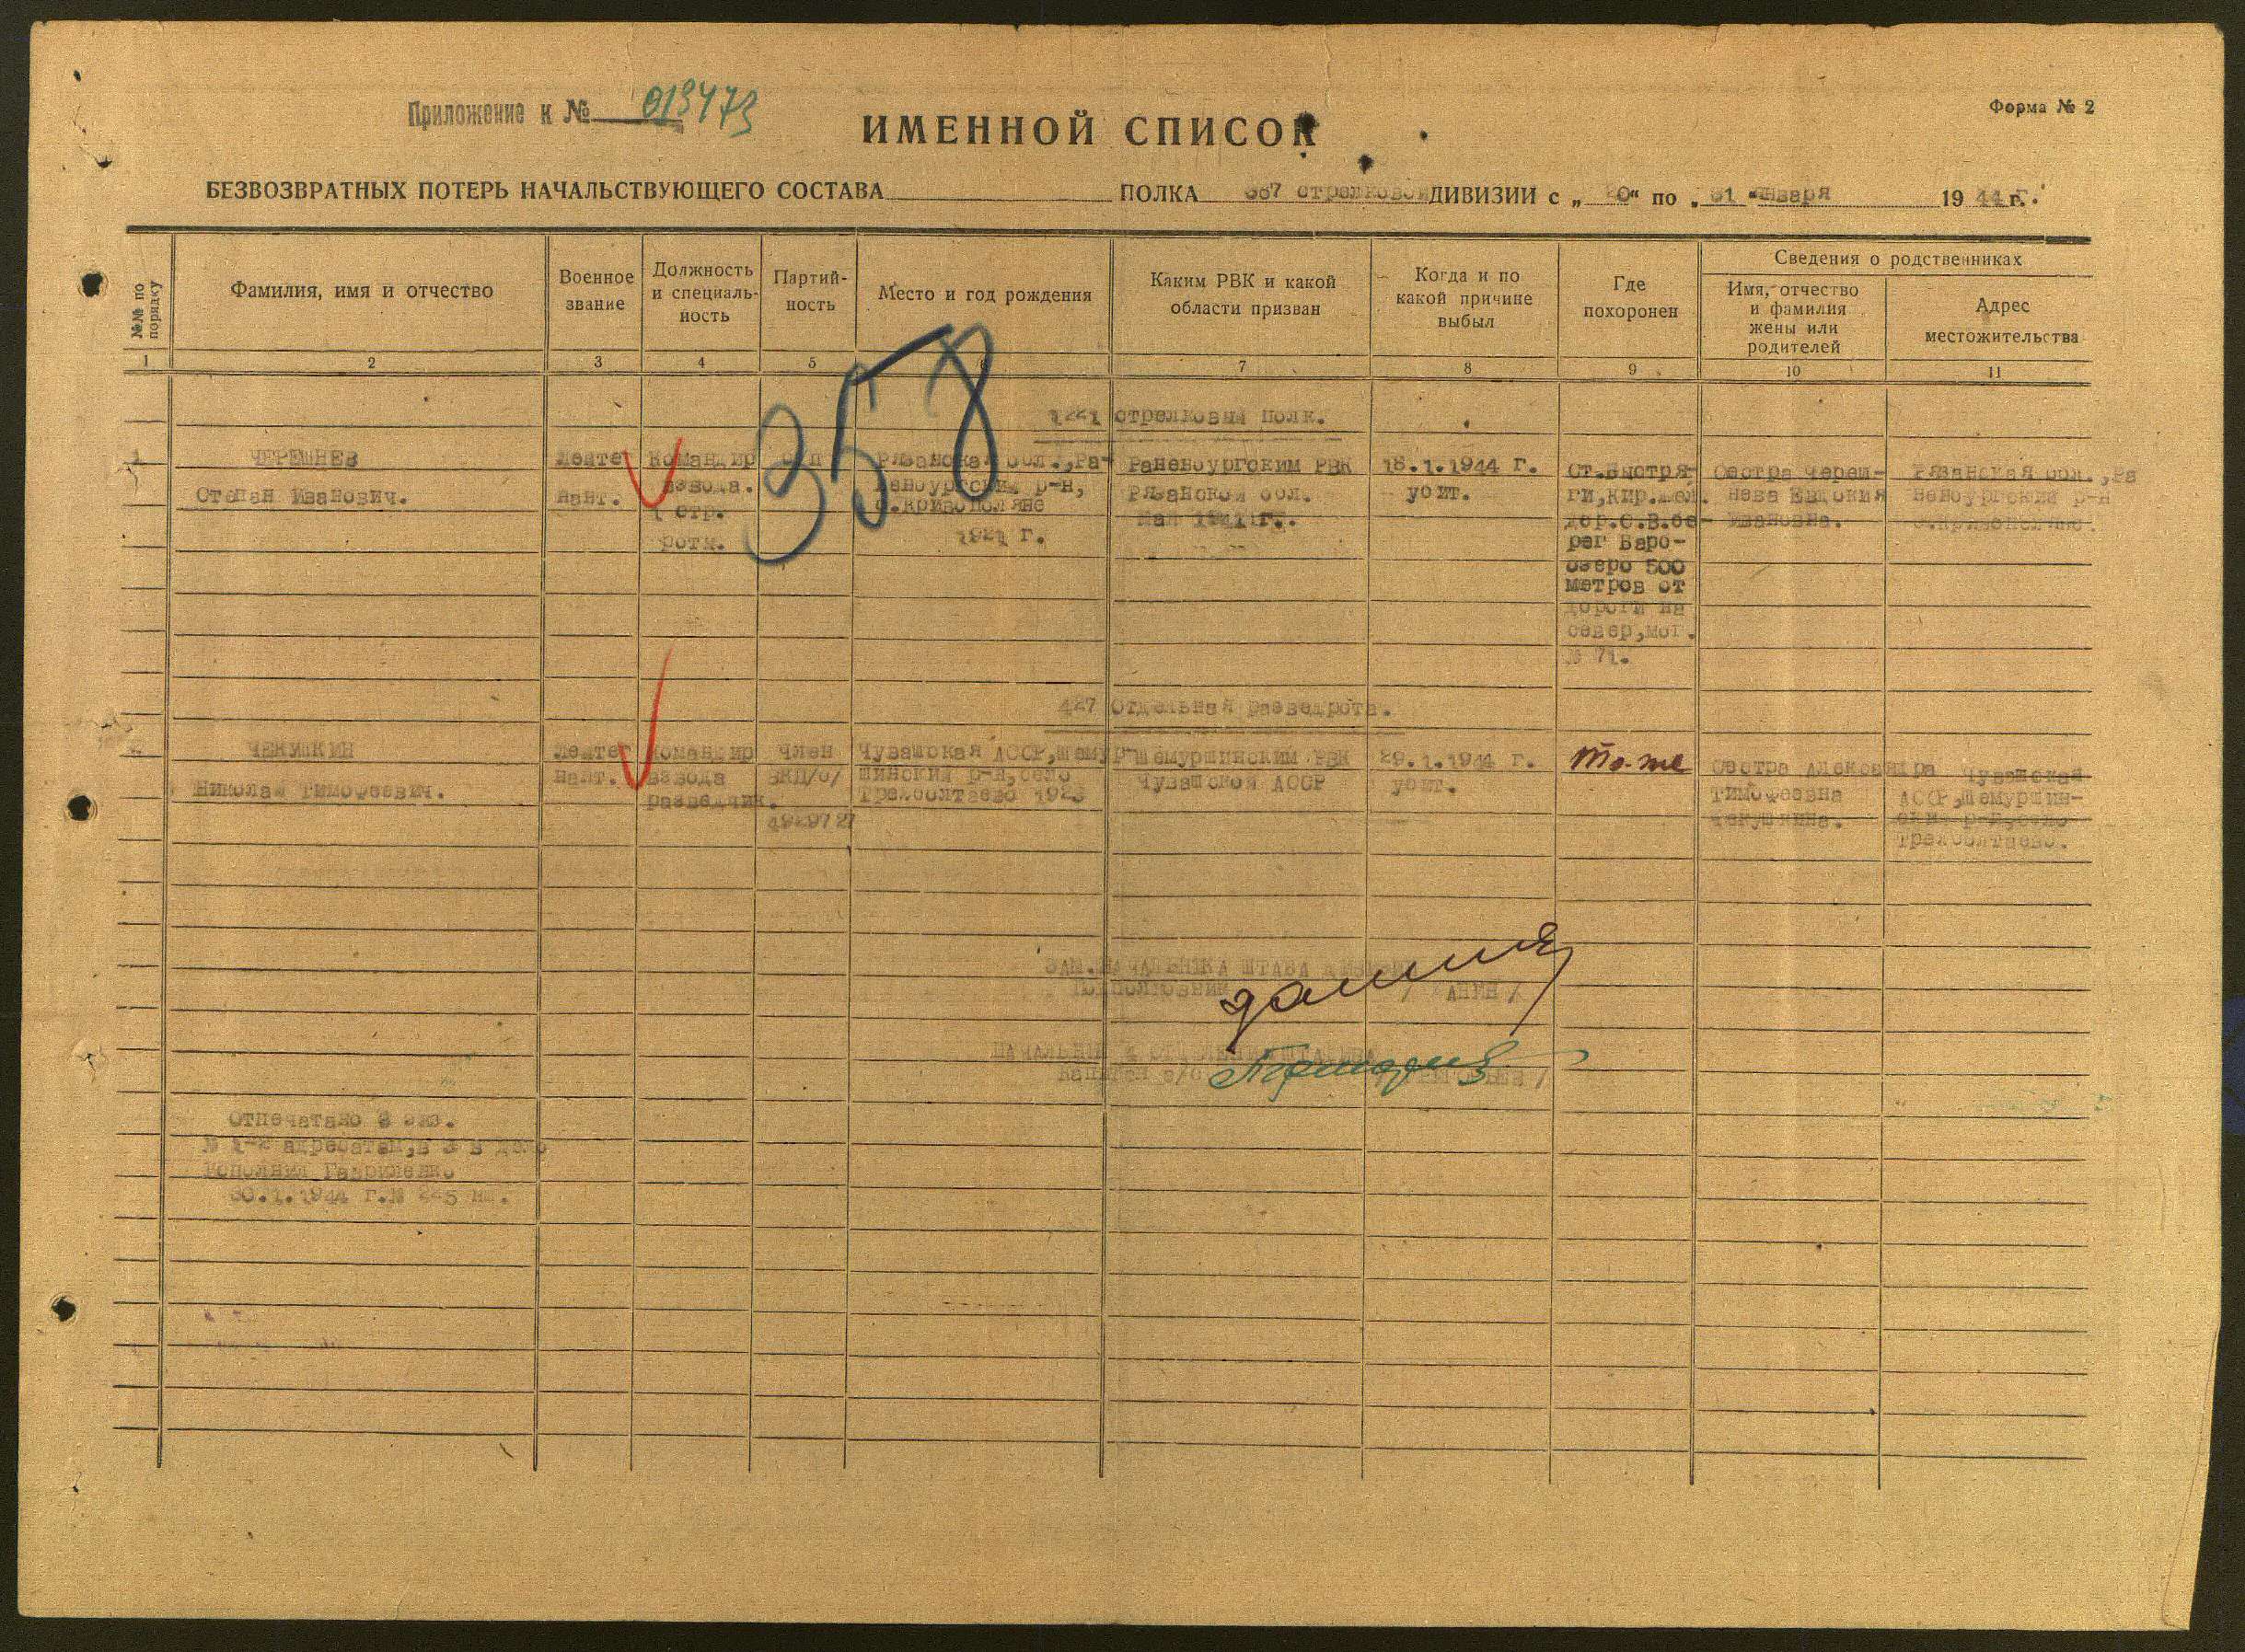 Приложение к № 019473
Форма № 2
ИМЕННОЙ СПИСОК
БЕЗВОЗВРАТНЫХ ПОТЕРЬ НАЧАЛЬСТВУЮЩЕГО СОСТАВА ПОЛКА стрелковой ДИВИЗИИ с „20“ по „31“ января 1944 г.
№№ по порядку
Фамилия, имя и отчество
Военное звание
Должность и специаль-ность
Партий-ность
Место и год рождения
Каким РВК и какой области призван
Когда и по какой причине выбыл
Где похоронен
Сведения о родственниках
Имя, отчество и фамилия жены или родителей
Адрес местожительства
1 2 3 4 5 6 7 8 9 10 11
358
1221 стрелковый полк.
1
ЧЕРЕШНЕВ
Степан Иванович.
Лейте
нант.
Командир
взвода.
1 стр.
роты.
Рязанская обл., Ра-
ненбургский р-н,
с.Кривополяне
1921 г.
Раненбургским РВК
Рязанской обл.
май 1941 г.
18.1.1944 г.
убит.
Ст.Быстря-
ги, Кир.жел.
дор. С.В.бе-
рег Варо-
озеро 500
метров от
дороги на
север, мог.
№ 71.
Сестра Череш-
нева Евдокия
Ивановна.
Рязанская обл., Ра
ненбургский р-н
с.Кривополяне.
427 отдельная разведрота.
ЧЕКУШКИН
Николай Тимофеевич.
Лейте
нант.
Командир
взвода
разведчик.
член
ВКП/б/
Чувашская АССР, Шемур
шинский р-н, село
Трехболтаево 1923
Шемуршинским РВК
Чувашской АССР
29.1.1944 г.
убит.
То-же
Сестра Александра
Тимофеевна
Чекушкина.
Чувашская
АССР, Шемуршин-
ский р-н, село
Трехболтаево.
ЗАМ.НАЧАЛЬНИКА ШТАБА ДИВИЗИИ
Подполковник
НАЧАЛЬНИК 4 ОТДЕЛЕНИЯ ШТАДИВА
Капитан а/с
Отпечатано 3 экз.
№ 1-2 адресатам, № 3 в дело
Исполнил Гавриленко
30.1.1944 г. № 225 нш.